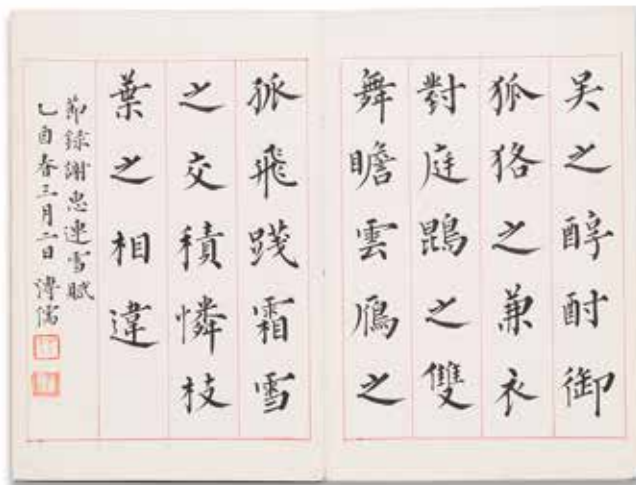 吴之醇酎御
狐狢之兼衣
對庭鵾之雙
舞瞻雲鴈之
孤飛踐霜雪
之交積憐枝
葉之相違
節録謝惠連雪賦
乙酉春三月二日 溥儒